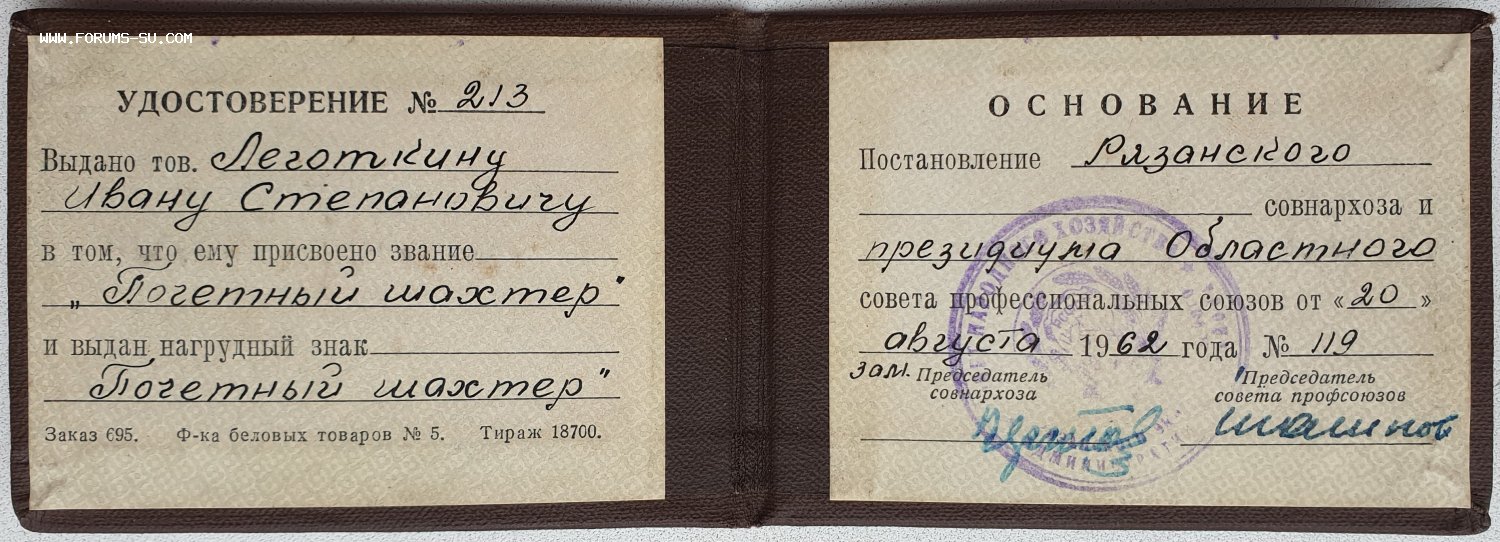 WWW.FORUMS-SU.COM
УДОСТОВЕРЕНИЕ № 213
Выдано тов. Леготкину
Ивану Степановичу
в том, что ему присвоено звание
„Почетный шахтер"
и выдан нагрудный знак
„Почетный шахтер"
Заказ 695. Ф-ка беловых товаров № 5. Тираж 18700.
ОСНОВАНИЕ
Постановление Рязанского
совнархоза и
президиума Областного
совета профессиональных союзов от «20»
августа 1962 года № 119
зам. Председатель
совнархоза
Председатель
совета профсоюзов
НАРОДНОГО ХОЗЯЙСТВА